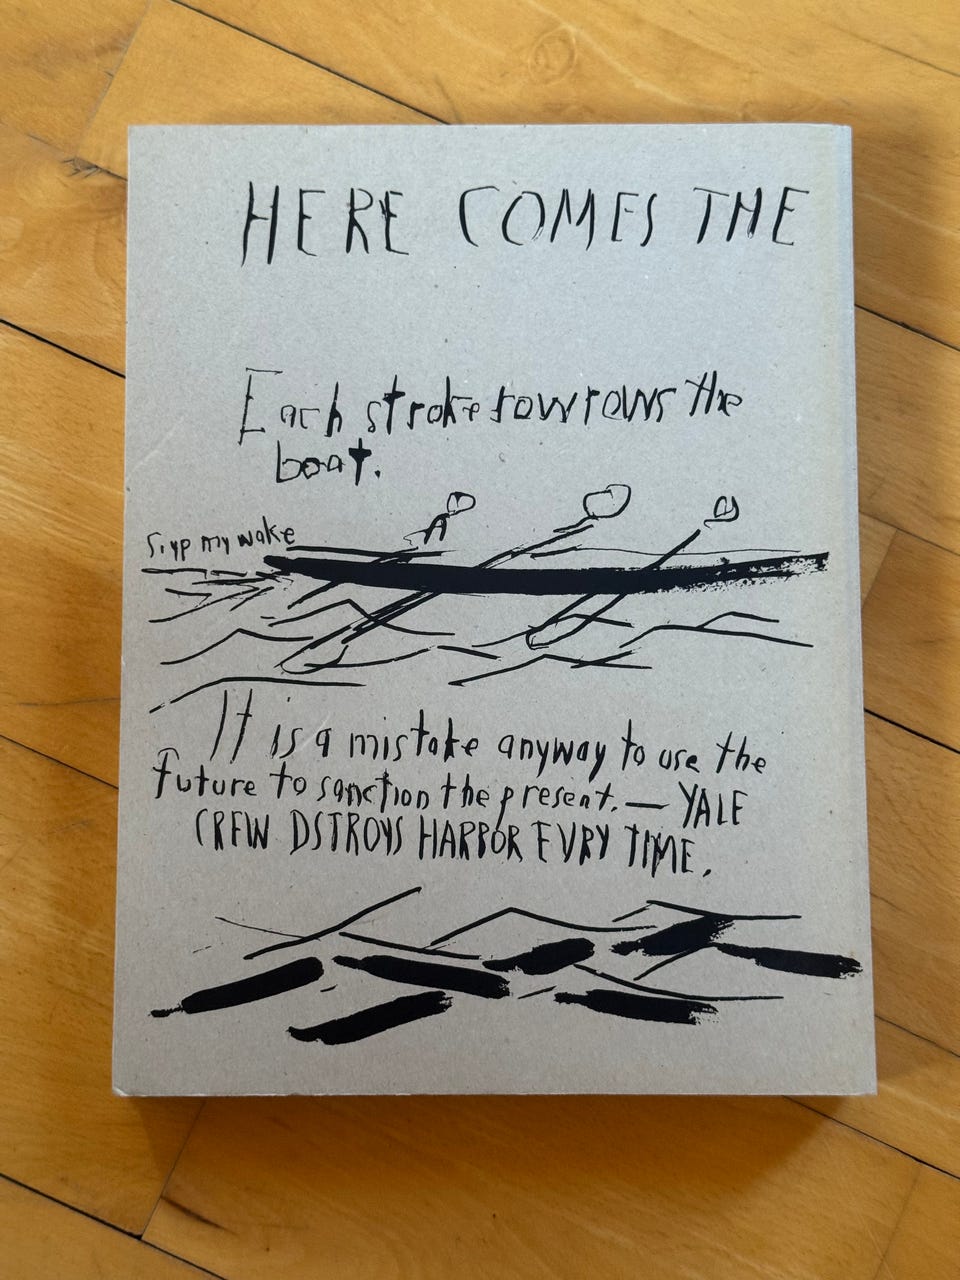 HERE COMES THE
Each stroke rowrows the
boat.
my wake
It is a mistake anyway to use the
future to sanction the present. — YALE
CREW DSTROYS HARBOR EVRY TIME.